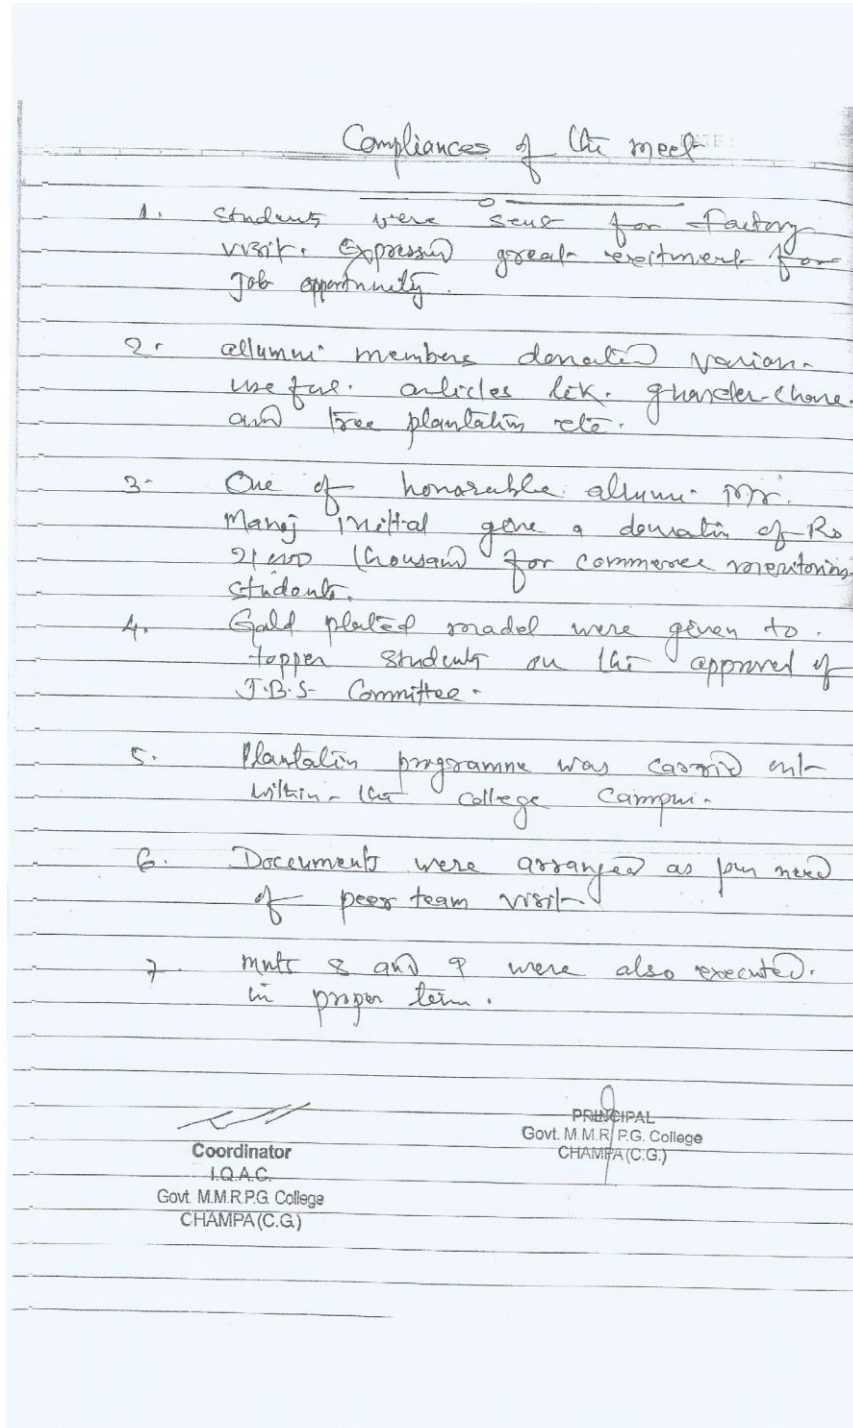 Compliances of the meet
1. Students were sent for Factory
visit. Expressed great exeitment for
Job opportunity.
2. allumni members donated various
useful articles lik.
and tree plantation etc.
3. One of honorable allumni Mr.
Manoj Mittal gave a donation of Rs
thousand for commerce meritorious
students.
4. Gold plated madel were given to
topper students on the approved of
J.B.S- Committee.
5. Plantation programme was carried out
within the college campus.
6. Documents were arranged as per need
of peer team visit
7. 8 and 9 were also executed.
in proper term.
PRINCIPAL
Govt. M.M.R P.G. College
CHAMPA (C.G.)
Coordinator
I.Q.A.C.
Govt. M.M.R.P.G. College
CHAMPA (C.G.)